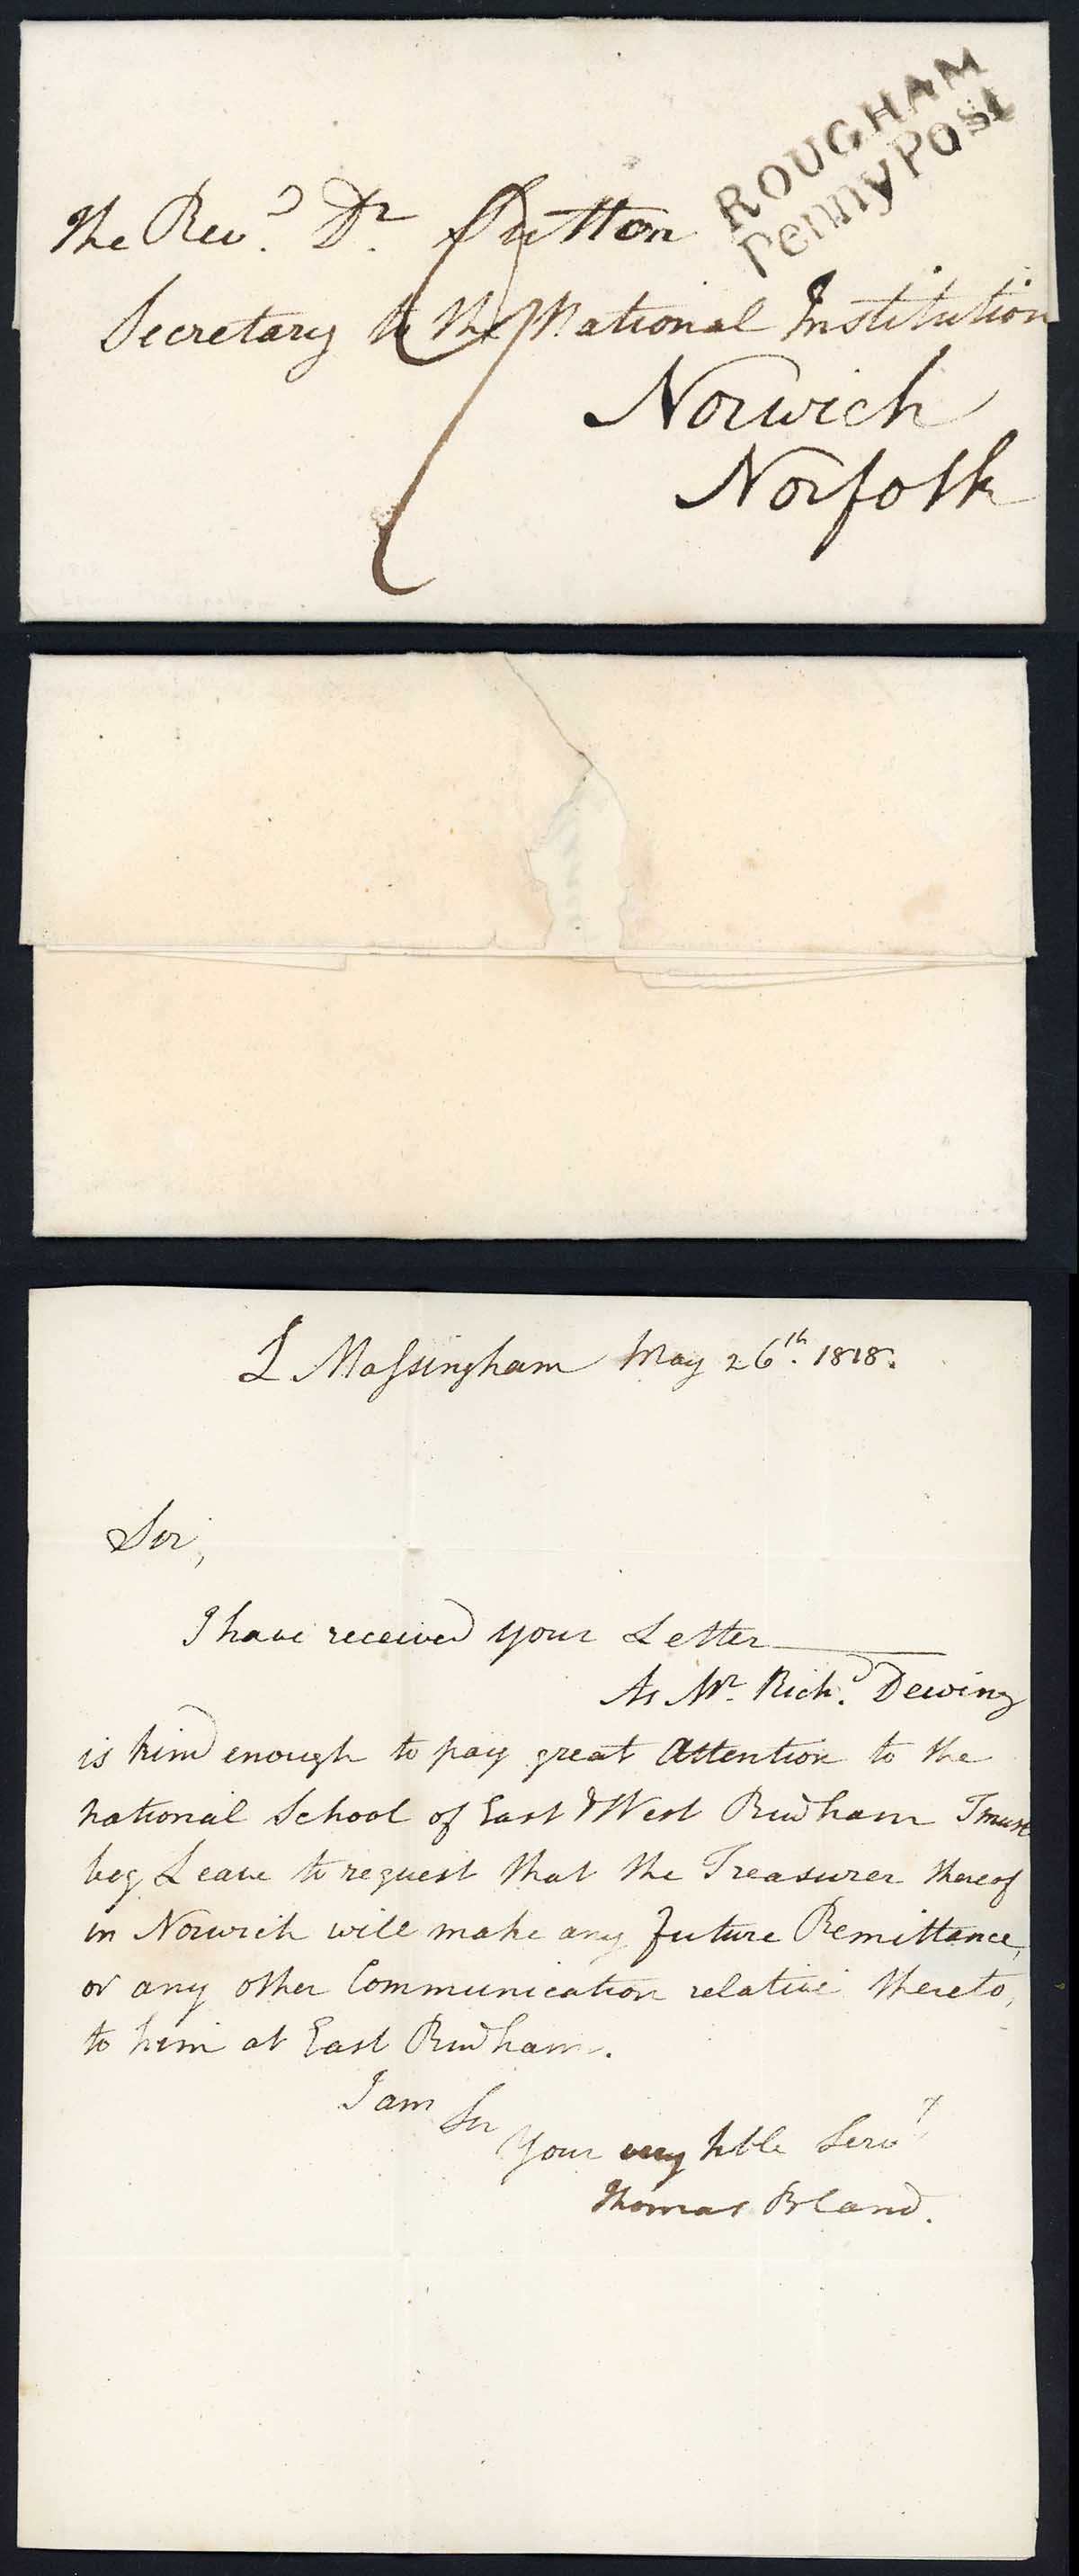 ROUGHAM
Penny Post
The Revd. Dr. Sutton
Secretary to the National Institution
Norwich
Norfolk
L Massingham May 26th. 1818.
Sir,
I have received your Letter
As Mr. Richd. Dewing
is kind enough to pay great Attention to the
national School of East & West Rudham I must
beg Leave to request that the Treasurer thereof
in Norwich will make any future Remittance,
or any other Communication relative thereto,
to him at East Rudham.
I am Sir
Your very hble Servt
Thomas Bland.